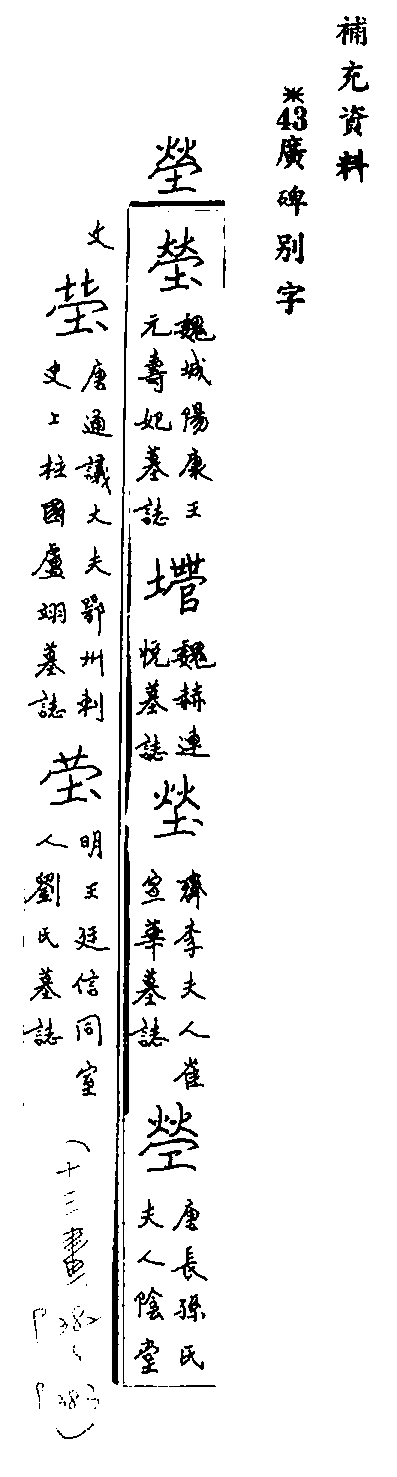 補充資料
※43廣碑別字
塋
塋
魏城陽康王
元壽妃墓誌
魏赫連
悅墓誌
齊李夫人崔
宣華墓誌
唐長孫氏
夫人陰堂
文
唐通議大夫鄂州刺
史上柱國盧翊墓誌
茔
明王廷信同室
人劉氏墓誌
(十三畫
P382、
P383)